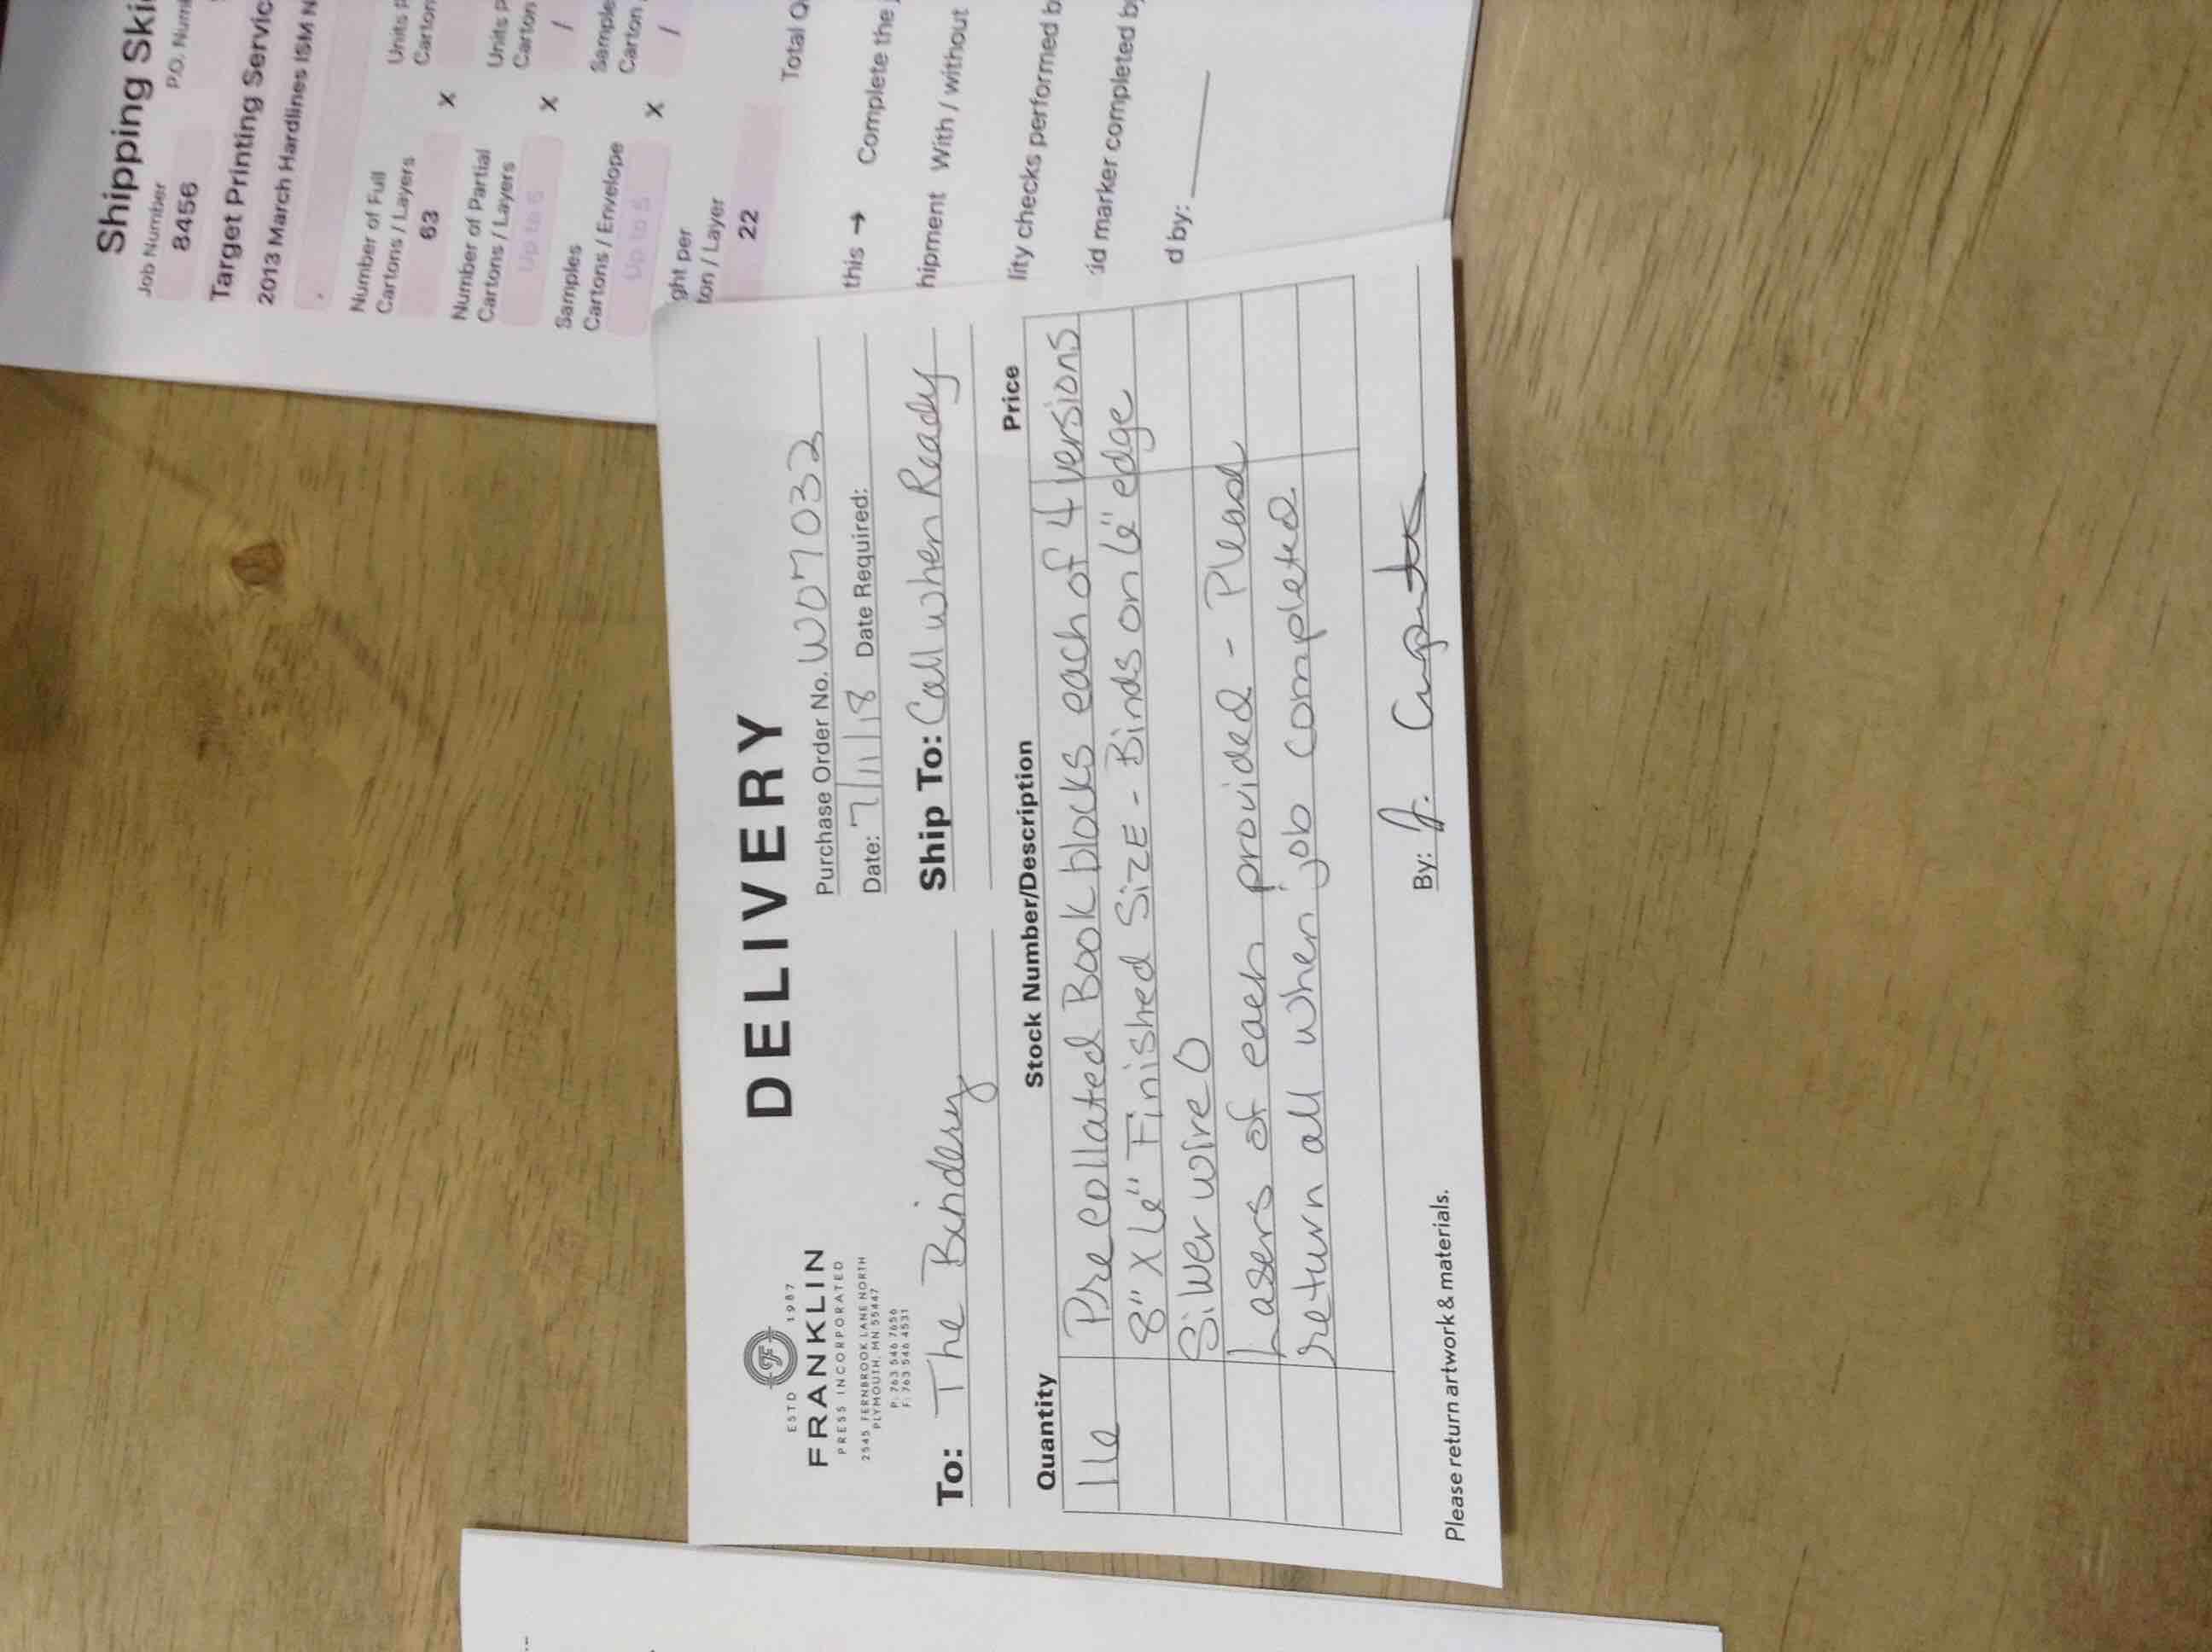 Shipping Ski
Job Number
P.O. Num
8456
Target Printing Servic
2013 March Hardlines ISM N
Number of Full
Cartons / Layers
Units p
Carton
63
X
Number of Partial
Cartons / Layers
Units p
Carton
Up to 5
X
/
Samples
Cartons / Envelope
Sample
Carton
Up to 5
X
/
ght per
ton / Layer
22
Total Q
this → Complete the
hipment With / without
lity checks performed b
id marker completed b
d by:
ESTD 1987
FRANKLIN
PRESS INCORPORATED
2545 FERNBROOK LANE NORTH
PLYMOUTH, MN 55447
P: 763 546 7656
F: 763 546 4531
DELIVERY
Purchase Order No. W07032
Date: 7/11/18 Date Required:
To: The Bindery
Ship To: Call when Ready
Quantity Stock Number/Description Price
16 Pre collated Book blocks each of 4 versions
8" X 6" Finished SizE - Binds on 6" edge
Silver wire O
Lasers of each provided - Please
return all when job completed
By: J. Carpenter
Please return artwork & materials.